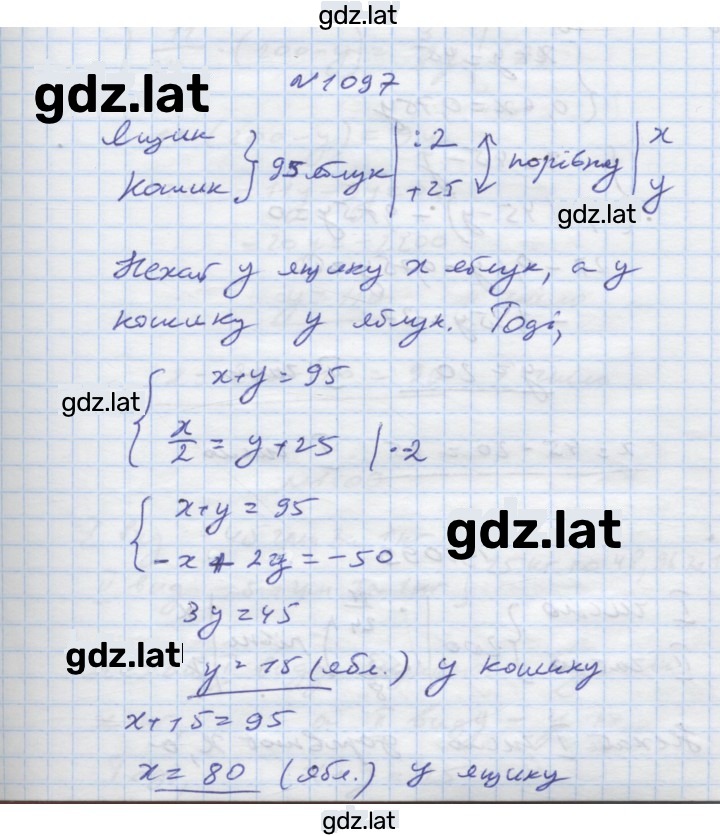 gdz.lat
gdz.lat
№1097
Ящик } 95 яблук | :2 ↕ порівну | x
Кошик } | +25 | y
gdz.lat
Нехай у ящику x яблук, а у
кошику y яблук. Тоді,
{ x+y=95
gdz.lat
{ x/2 = y+25 | ·2
{ x+y=95
{ -x+2y=-50
gdz.lat
3y=45
gdz.lat
y=15 (ябл.) у кошику
x+15=95
x=80 (ябл.) у ящику
gdz.lat